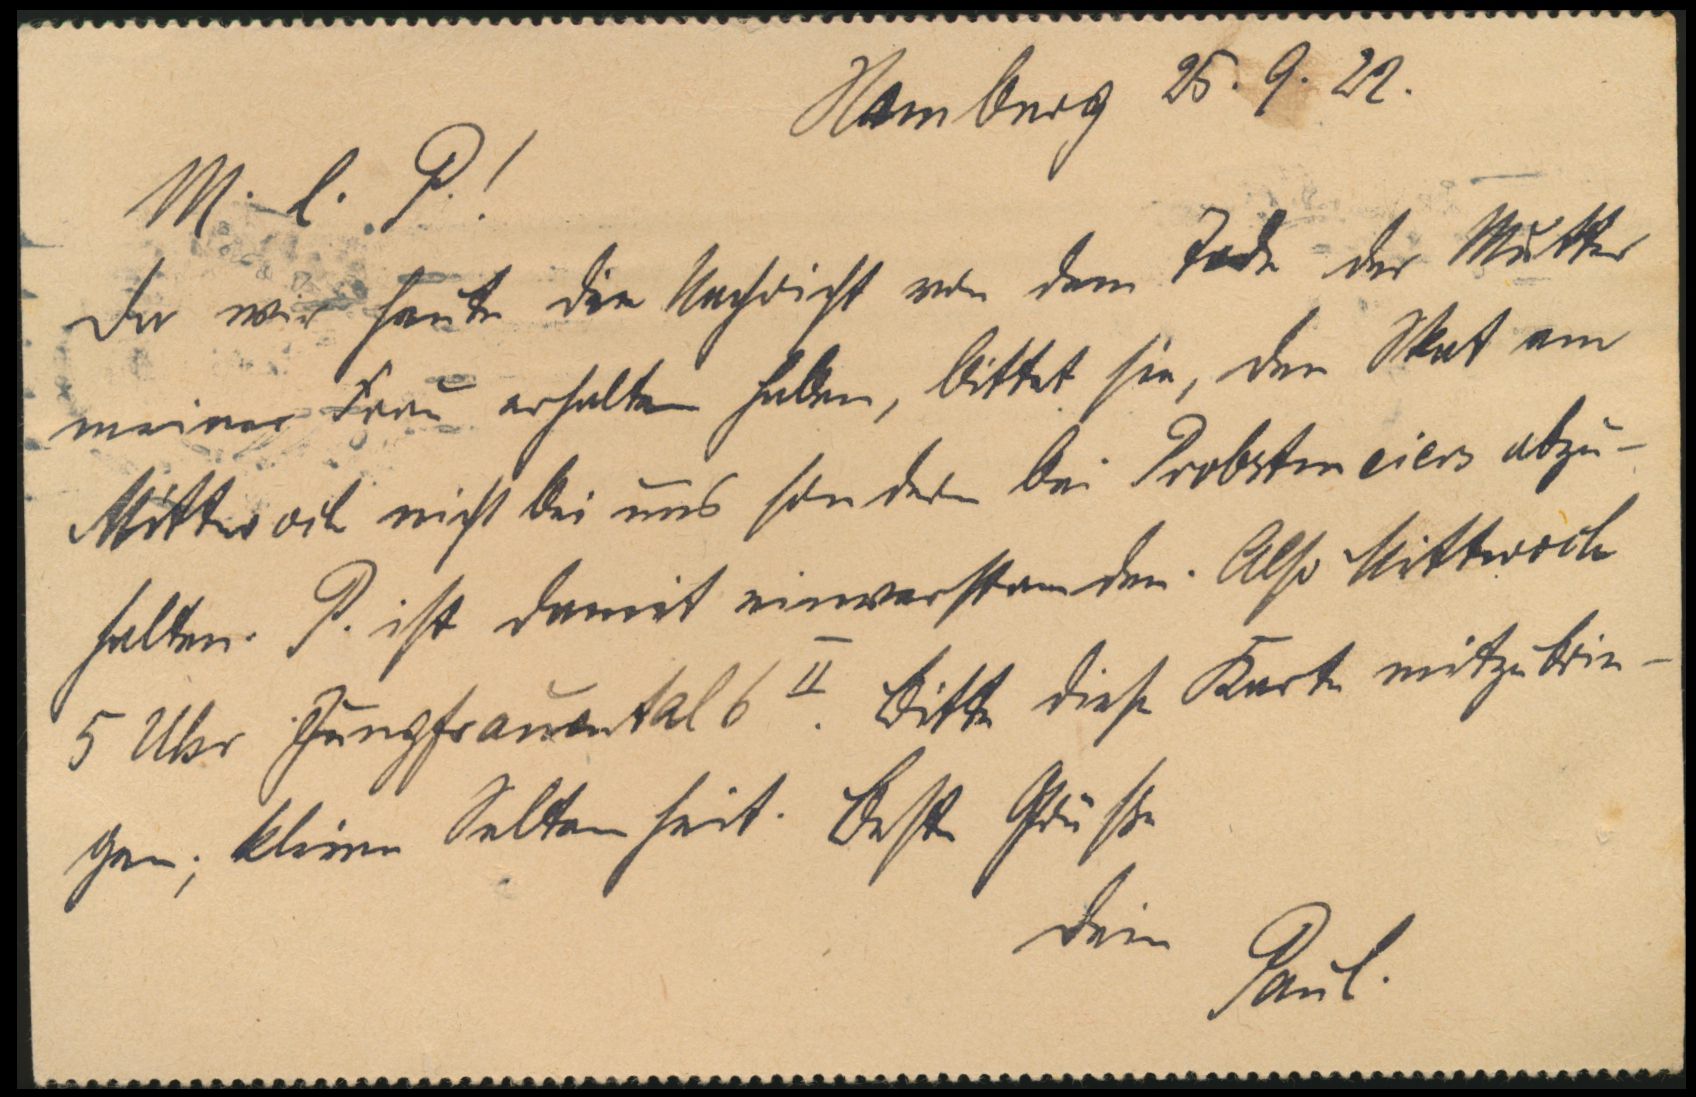 Hamburg 25. 9. 22.
M. l. P.!
Da wir heute die Nachricht von dem Tode der Mutter
meiner Frau erhalten haben, bittet sie, den Skat am
Mittwoch nicht bei uns sondern bei abzu-
halten. P. ist damit einverstanden. Also Mittwoch
5 Uhr Jungfrauental 6 II. Bitte diese Karte mitzubrin-
gen; kleine Seltenheit. Beste Grüße
Dein
Paul.